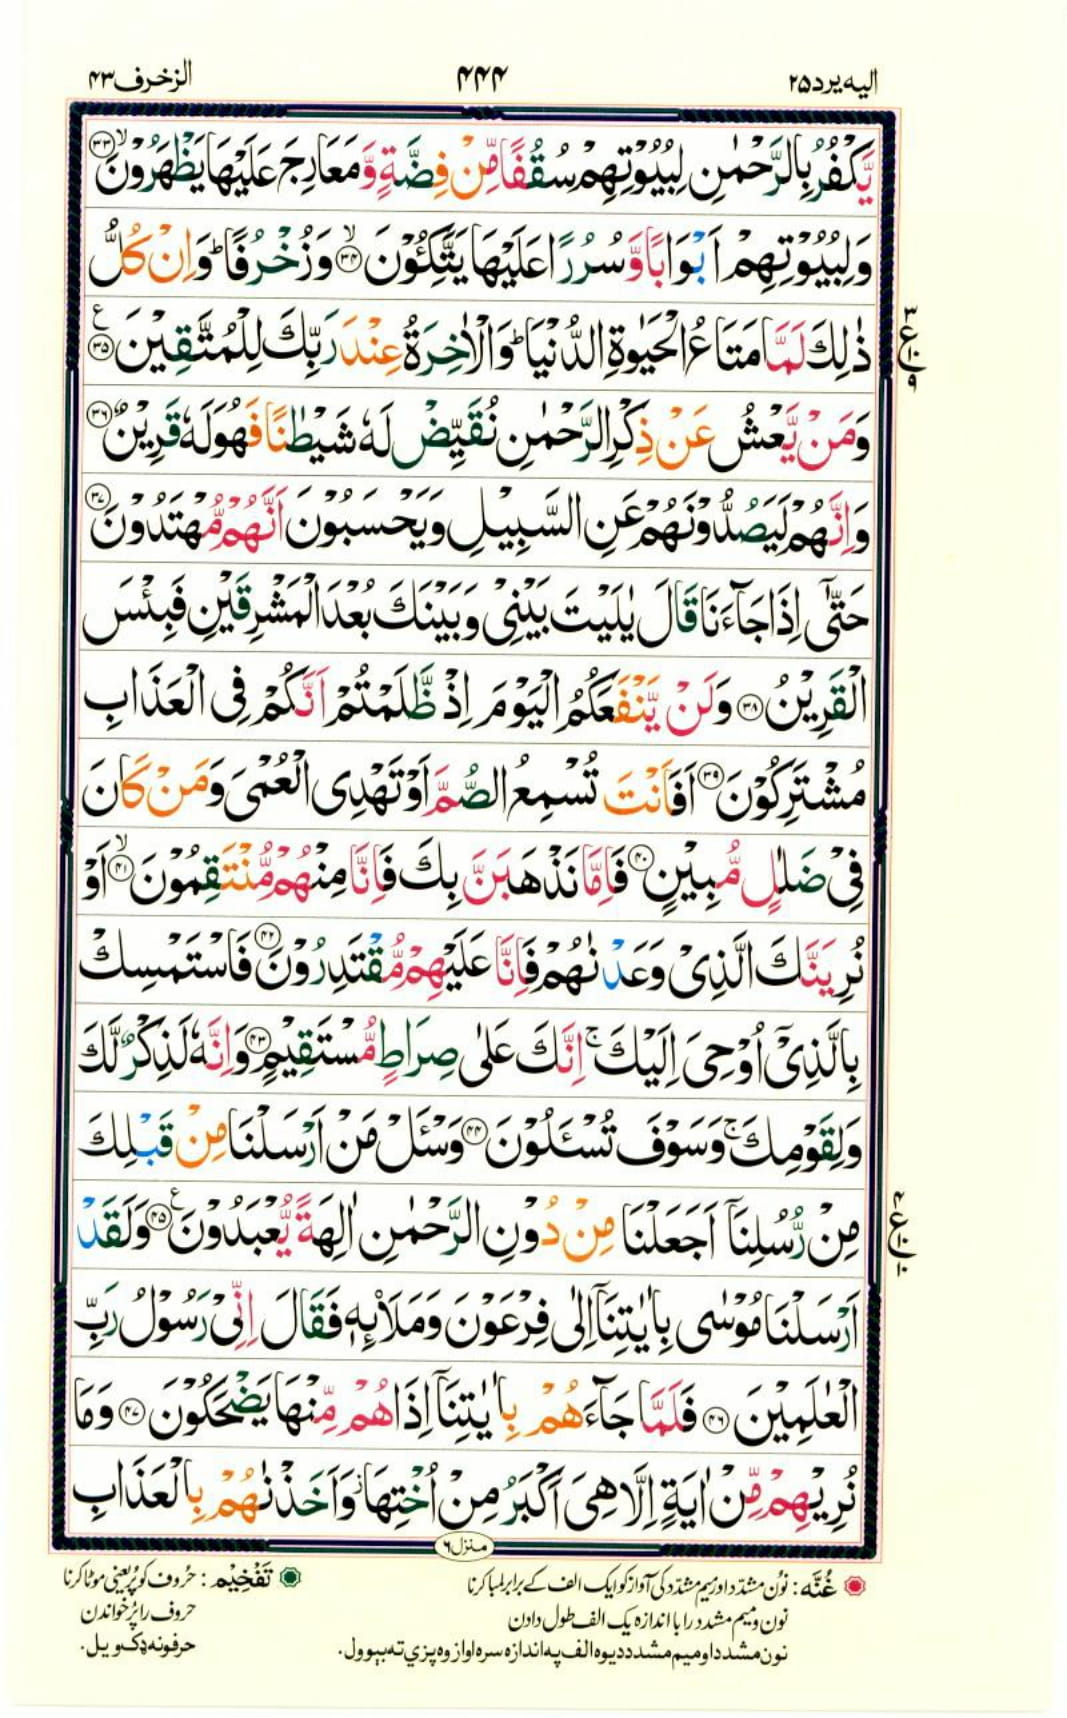 الیه یرد ۲۵
۴۴۴
الزخرف ۴۳
یَّكْفُرُ بِالرَّحْمٰنِ لِبُیُوْتِهِمْ سُقُفًا مِّنْ فِضَّةٍ وَّمَعَارِجَ عَلَیْهَا یَظْهَرُوْنَ ۙ﴿۳۳﴾
وَلِبُیُوْتِهِمْ اَبْوَابًا وَّسُرُرًا عَلَیْهَا یَتَّكِئُوْنَ ۙ﴿۳۴﴾ وَزُخْرُفًا ؕ وَاِنْ كُلُّ
ذٰلِكَ لَمَّا مَتَاعُ الْحَیٰوةِ الدُّنْیَا ؕ وَالْاٰخِرَةُ عِنْدَ رَبِّكَ لِلْمُتَّقِیْنَ ﴿۳۵﴾ع
وَمَنْ یَّعْشُ عَنْ ذِكْرِ الرَّحْمٰنِ نُقَیِّضْ لَهٗ شَیْطٰنًا فَهُوَ لَهٗ قَرِیْنٌ ﴿۳۶﴾
وَاِنَّهُمْ لَیَصُدُّوْنَهُمْ عَنِ السَّبِیْلِ وَیَحْسَبُوْنَ اَنَّهُمْ مُّهْتَدُوْنَ ﴿۳۷﴾
حَتّٰۤی اِذَا جَآءَنَا قَالَ یٰلَیْتَ بَیْنِیْ وَبَیْنَكَ بُعْدَ الْمَشْرِقَیْنِ فَبِئْسَ
الْقَرِیْنُ ﴿۳۸﴾ وَلَنْ یَّنْفَعَكُمُ الْیَوْمَ اِذْ ظَّلَمْتُمْ اَنَّكُمْ فِی الْعَذَابِ
مُشْتَرِكُوْنَ ﴿۳۹﴾ اَفَاَنْتَ تُسْمِعُ الصُّمَّ اَوْ تَهْدِی الْعُمْیَ وَمَنْ كَانَ
فِیْ ضَلٰلٍ مُّبِیْنٍ ﴿۴۰﴾ فَاِمَّا نَذْهَبَنَّ بِكَ فَاِنَّا مِنْهُمْ مُّنْتَقِمُوْنَ ۙ﴿۴۱﴾ اَوْ
نُرِیَنَّكَ الَّذِیْ وَعَدْنٰهُمْ فَاِنَّا عَلَیْهِمْ مُّقْتَدِرُوْنَ ﴿۴۲﴾ فَاسْتَمْسِكْ
بِالَّذِیْۤ اُوْحِیَ اِلَیْكَ ۚ اِنَّكَ عَلٰی صِرَاطٍ مُّسْتَقِیْمٍ ﴿۴۳﴾ وَاِنَّهٗ لَذِكْرٌ لَّكَ
وَلِقَوْمِكَ ۚ وَسَوْفَ تُسْئَلُوْنَ ﴿۴۴﴾ وَسْئَلْ مَنْ اَرْسَلْنَا مِنْ قَبْلِكَ
مِنْ رُّسُلِنَاۤ اَجَعَلْنَا مِنْ دُوْنِ الرَّحْمٰنِ اٰلِهَةً یُّعْبَدُوْنَ ﴿۴۵﴾ع وَلَقَدْ
اَرْسَلْنَا مُوْسٰی بِاٰیٰتِنَاۤ اِلٰی فِرْعَوْنَ وَمَلَا۟ئِهٖ فَقَالَ اِنِّیْ رَسُوْلُ رَبِّ
الْعٰلَمِیْنَ ﴿۴۶﴾ فَلَمَّا جَآءَهُمْ بِاٰیٰتِنَاۤ اِذَا هُمْ مِّنْهَا یَضْحَكُوْنَ ﴿۴۷﴾ وَمَا
نُرِیْهِمْ مِّنْ اٰیَةٍ اِلَّا هِیَ اَكْبَرُ مِنْ اُخْتِهَا ؗ وَاَخَذْنٰهُمْ بِالْعَذَابِ
منزل ۶
غُنَّه: نون مشدّد اور میم مشدّد کی آواز کو ایک الف کے برابر لمبا کرنا
نون و میم مشدد را با اندازه یک الف طول دادن
نون مشدد او میم مشدد دیوه الف په اندازه سره اواز وه پزي ته بیوول.
تَفْخِیْم: حروف کو پُر یعنی موٹا کرنا
حروف را پُر خواندن
حرفونه ډک ویل.